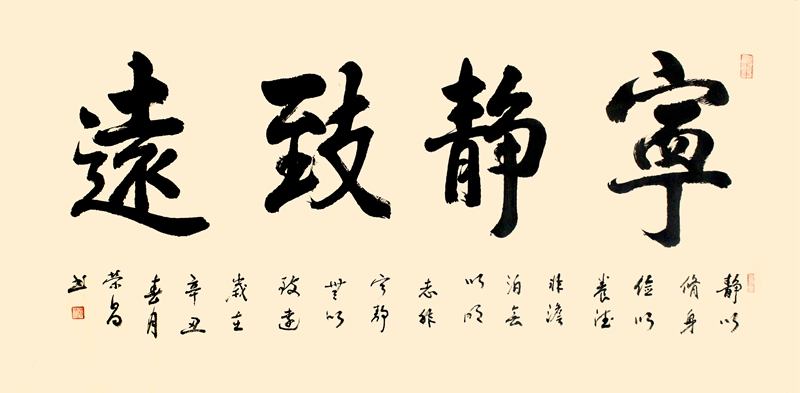 寧靜致遠
靜以
脩身
儉以
養德
非澹
泊無
以明
志非
寧靜
無以
致遠
歲在
辛丑
春月
榮昌
書